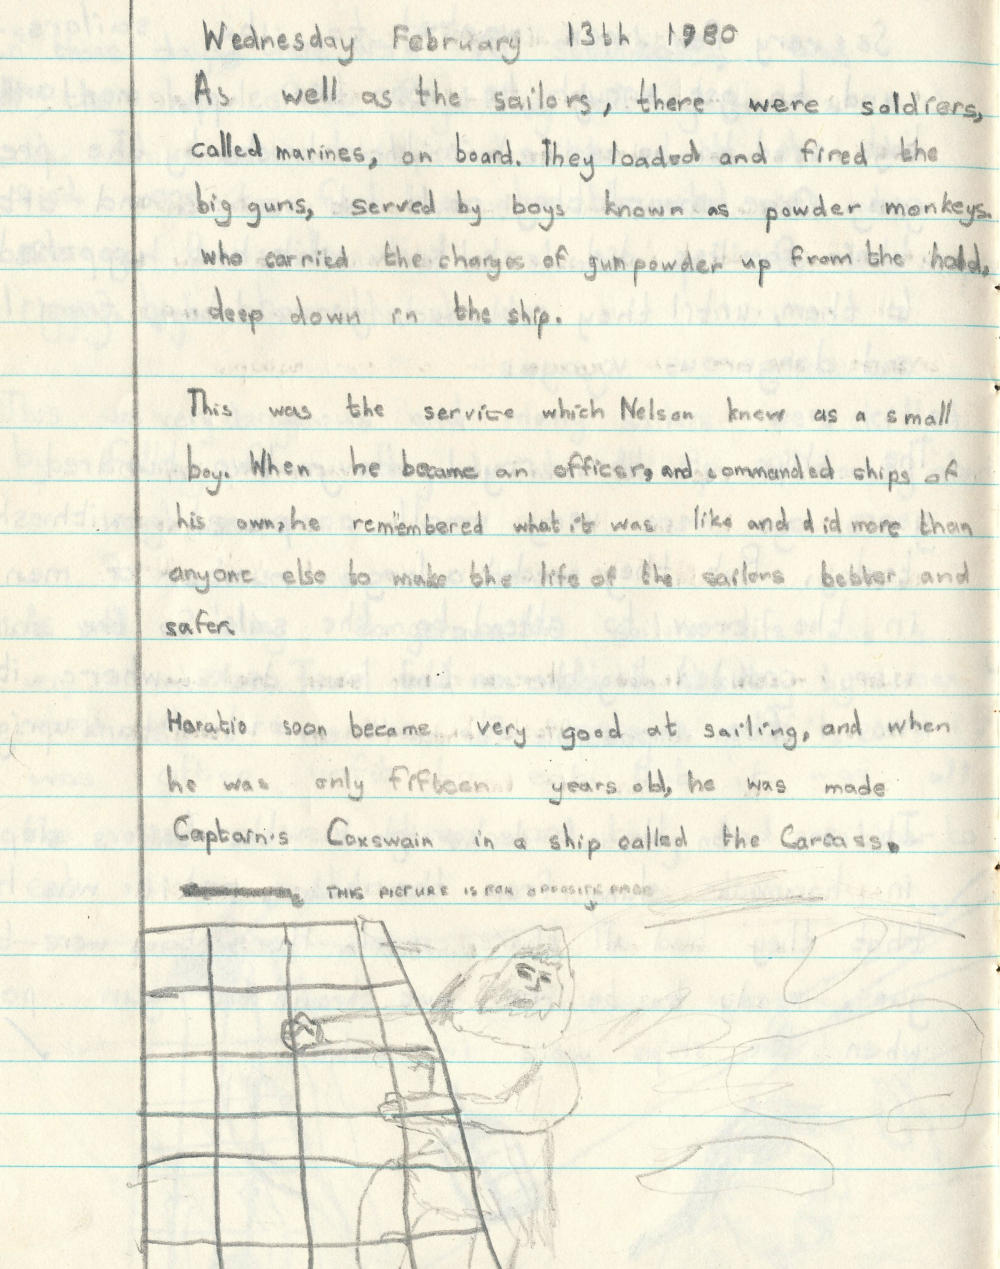 Wednesday February 13th 1980
As well as the sailors, there were soldiers,
called marines, on board. They loaded and fired the
big guns, served by boys known as powder monkeys.
who carried the charges of gunpowder up from the hold,
deep down in the ship.
This was the service which Nelson knew as a small
boy. When he became an officer, and commanded ships of
his own, he remembered what it was like and did more than
anyone else to make the life of the sailors better and
safer.
Horatio soon became very good at sailing, and when
he was only fifteen years old, he was made
Captain's Coxswain in a ship called the Carcass.
THIS PICTURE IS FOR OPPOSITE PAGE